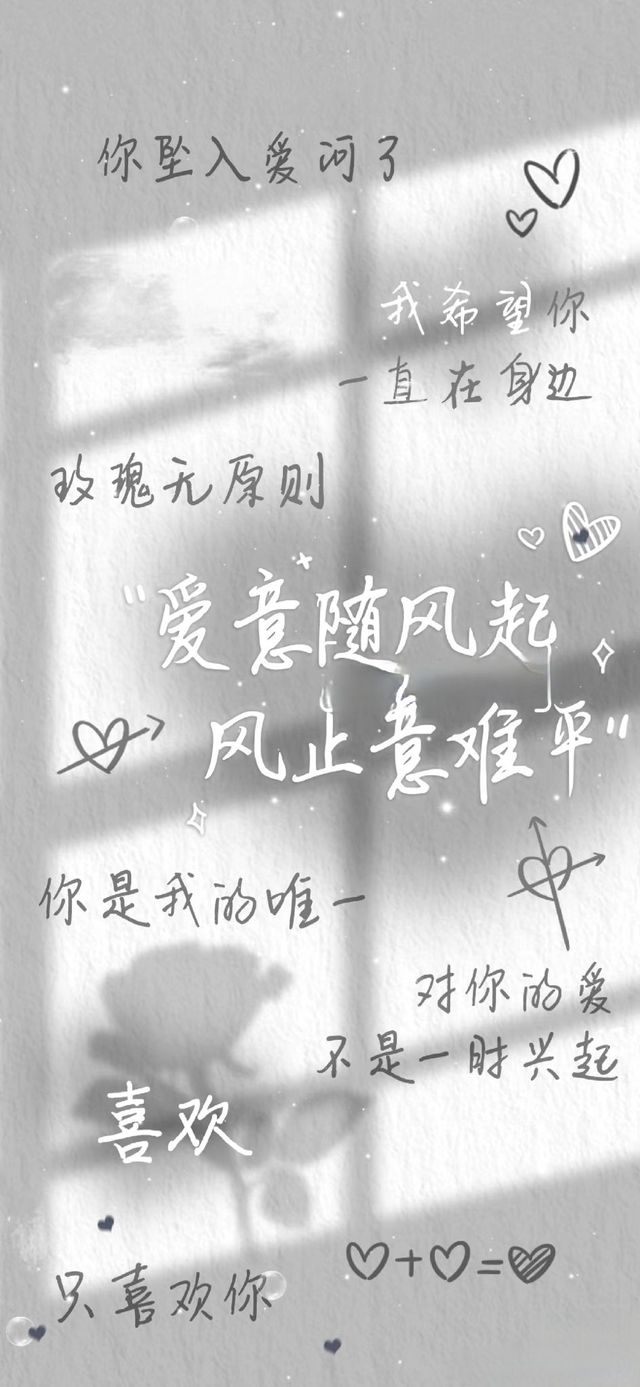 你坠入爱河了
我希望你
一直在身边
玫瑰无原则
"爱意随风起
风止意难平"
你是我的唯一
对你的爱
不是一时兴起
喜欢
只喜欢你